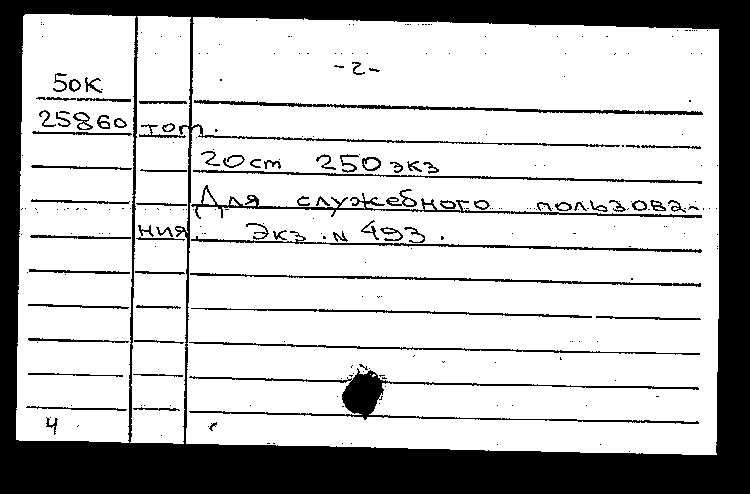 -2-
50К
25860 тот.
20см 250экз
Для служебного пользова-
ния. Экз. N 493.
4